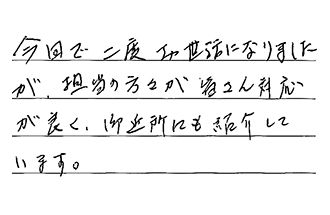 今回で二度お世話になりました
が、担当の方々が皆さん対応
が良く、御近所にも紹介して
います。